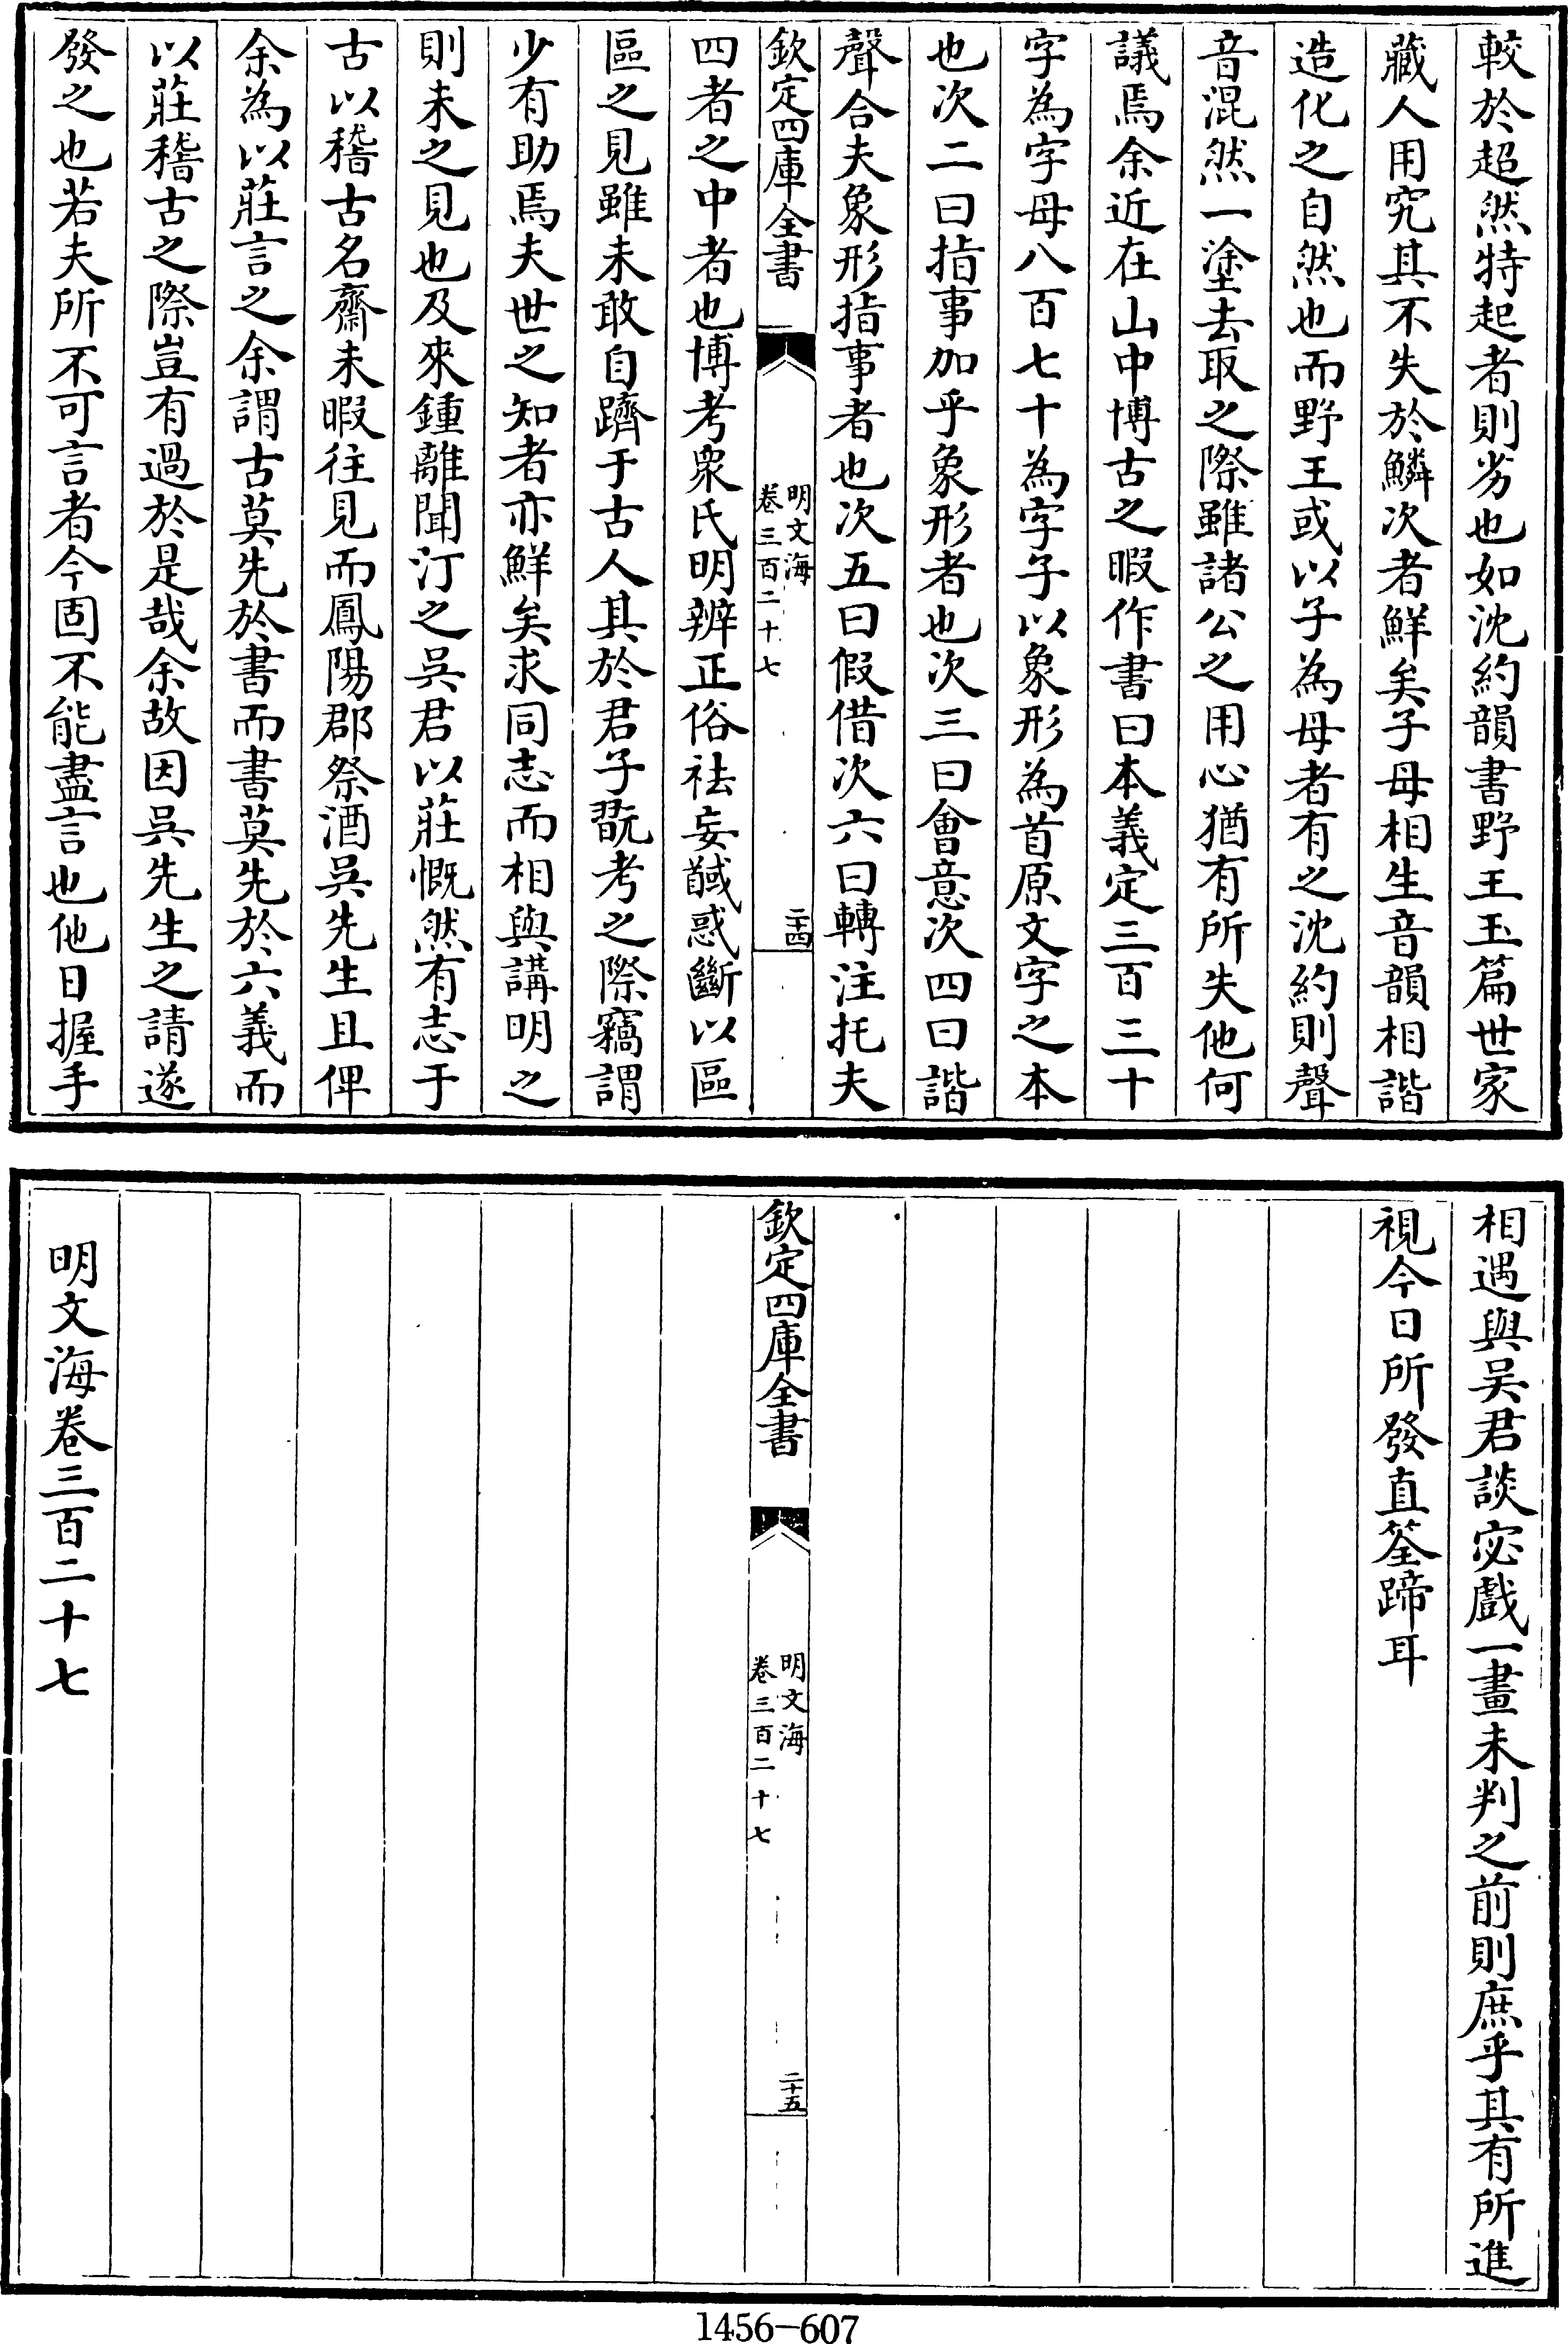 較於超然特起者則劣也如沈約韻書野王玉篇世家
藏人用究其不失於鱗次者鮮矣子母相生音韻相諧
造化之自然也而野王或以子為母者有之沈約則聲
音混然一塗去取之際雖諸公之用心猶有所失他何
議焉余近在山中博古之暇作書曰本義定三百三十
字為字母八百七十為字子以象形為首原文字之本
也次二曰指事加乎象形者也次三曰會意次四曰諧
聲合夫象形指事者也次五曰假借次六曰轉注托夫
欽定四庫全書
明文海
卷三百二十七
二十四
四者之中者也博考衆氏明辨正俗祛妄馘惑斷以區
區之見雖未敢自躋于古人其於君子翫考之際竊謂
少有助焉夫世之知者亦鮮矣求同志而相與講明之
則未之見也及來鍾離聞汀之吳君以莊慨然有志于
古以稽古名齋未暇往見而鳳陽郡祭酒吳先生且俾
余為以莊言之余謂古莫先於書而書莫先於六義而
以莊稽古之際豈有過於是哉余故因吳先生之請遂
發之也若夫所不可言者今固不能盡言也他日握手
相遇與吳君談宓戲一畫未判之前則庶乎其有所進
視今日所發直筌蹄耳
欽定四庫全書
明文海
卷三百二十七
二十五
明文海卷三百二十七
1456-607